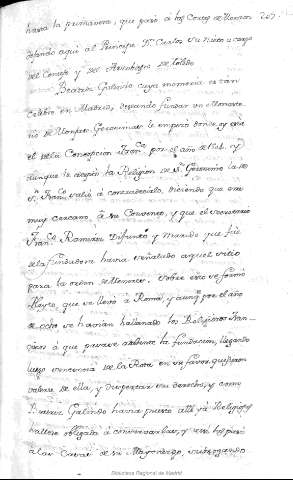 hasta la primavera, que partió á las Cortes de Monzon 267.
dejando aqui al Principe Dn. Carlos su nieto a cargo
del Consejo y del Arzobispo de Toledo.
Beatriz Galindo cuya memoria es tan
celebre en Madrid, deseando fundar un Monaste-
rio de Monjas Geronimas le empezó donde oy es
el de la Concepcion Franca. por el año de y
aunque le acepto la Religion de S. Geronimo la de
Sn. Franco. salió á contradecirlo, diciendo que era
muy cercano á su Convento, y que el Secretario
Franco. Ramirez Difunto y Marido que fué
de la fundadora havia señalado aquel sitio
para la orden de Menores. Sobre esto se formó
Pleyto, que se llevó á Roma y aunq. por el año
de ocho se havian hallanado los Religiosos Fran-
cos á que pasase adelante la fundacion, llegando
luego sentencia de la Rota en su favor, quisieron
valerse de ella, y despertar su derecho, y como
Beatriz Galindo havia puesto allí ya Religiosas
hallose obligada á conservarlas, y asi las pasó
a las Casas de su Mayorazgo,
Biblioteca Regional de Madrid